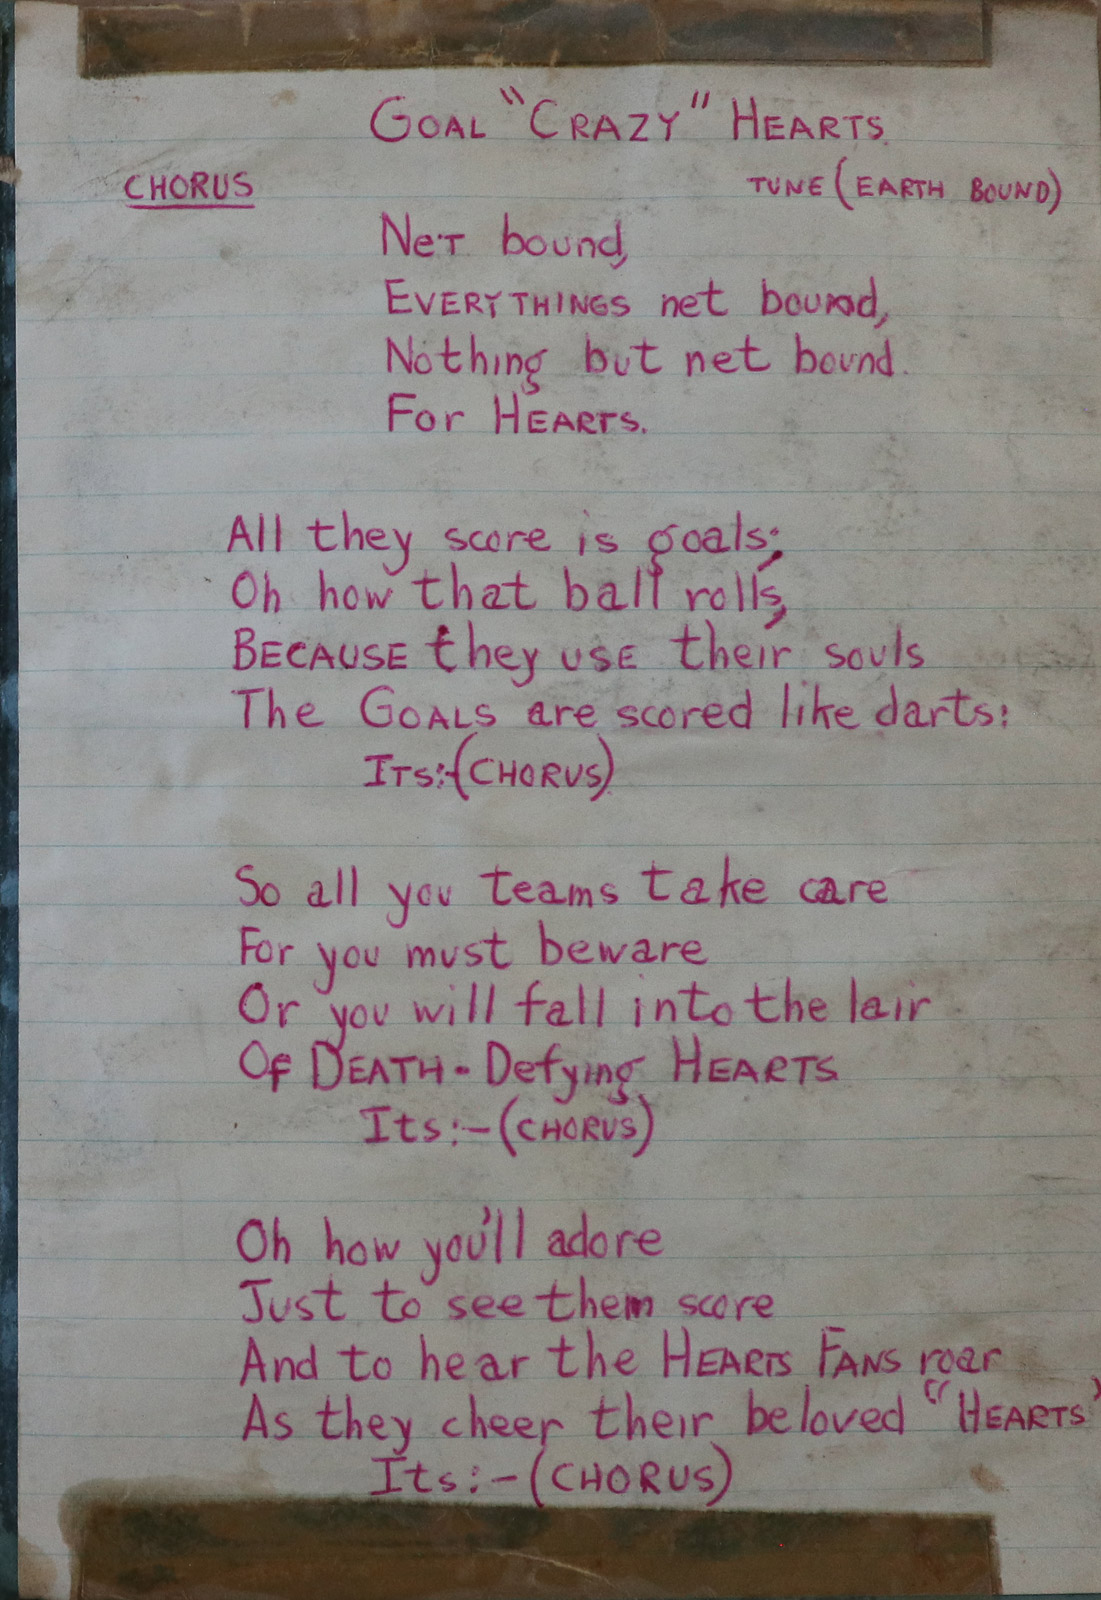 GOAL "CRAZY" HEARTS.
CHORUS
TUNE (EARTH BOUND)
NeT bound,
EVERYTHINGS net bound,
Nothing but net bound.
For HEARTS.
All they score is goals:
Oh how that ball rolls,
BECAUSE they USE their souls
The GOALS are scored like darts:
ITs:-(CHORUS)
So all you teams take care
For you must beware
Or you will fall into the lair
Of DEATH-Defying HEARTS
Its:-(CHORUS)
Oh how you'll adore
Just to see them score
And to hear the HEARTS FANS roar
As they cheer their beloved "HEARTS"
Its:-(CHORUS)